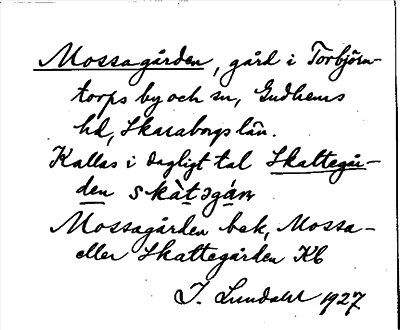 Mossagården, gård i Torbjörn-
torps by och sn, Gudhems
hd, Skaraborgs län.
Kallas i dagligt tal Skattegår-
den skàtəgán
Mossagården bek, Mossa-
eller Skattegården Kb
J. Lundahl 1927